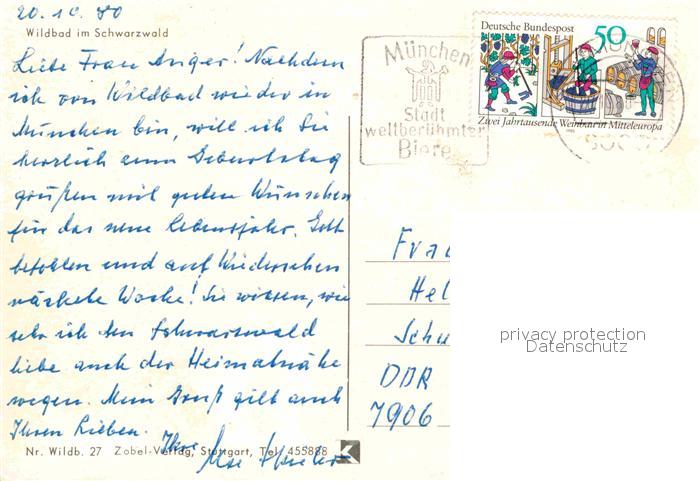 20. 10. 80
Wildbad im Schwarzwald
Liebe Frau Anger! Nachdem
ich von Wildbad wieder in
München bin, will ich Sie
herzlich zum Geburtstag
grüßen mit guten Wünschen
für das neue Lebensjahr. Gott
befohlen und auf Wiedersehen
nächste Woche! Sie wissen, wie
sehr ich den Schwarzwald
liebe auch der Heimatnähe
wegen. Mein Gruß gilt auch
Ihren Lieben.
Ihre Ilse
Nr. Wildb. 27 Zobel-Verlag, Stuttgart, Tel. 455888 K
München
Stadt
weltberühmter
Biere
Deutsche Bundespost 50
Zwei Jahrtausende Weinbau in Mitteleuropa
Frau
Hel
Schu
DDR
7906
privacy protection
Datenschutz